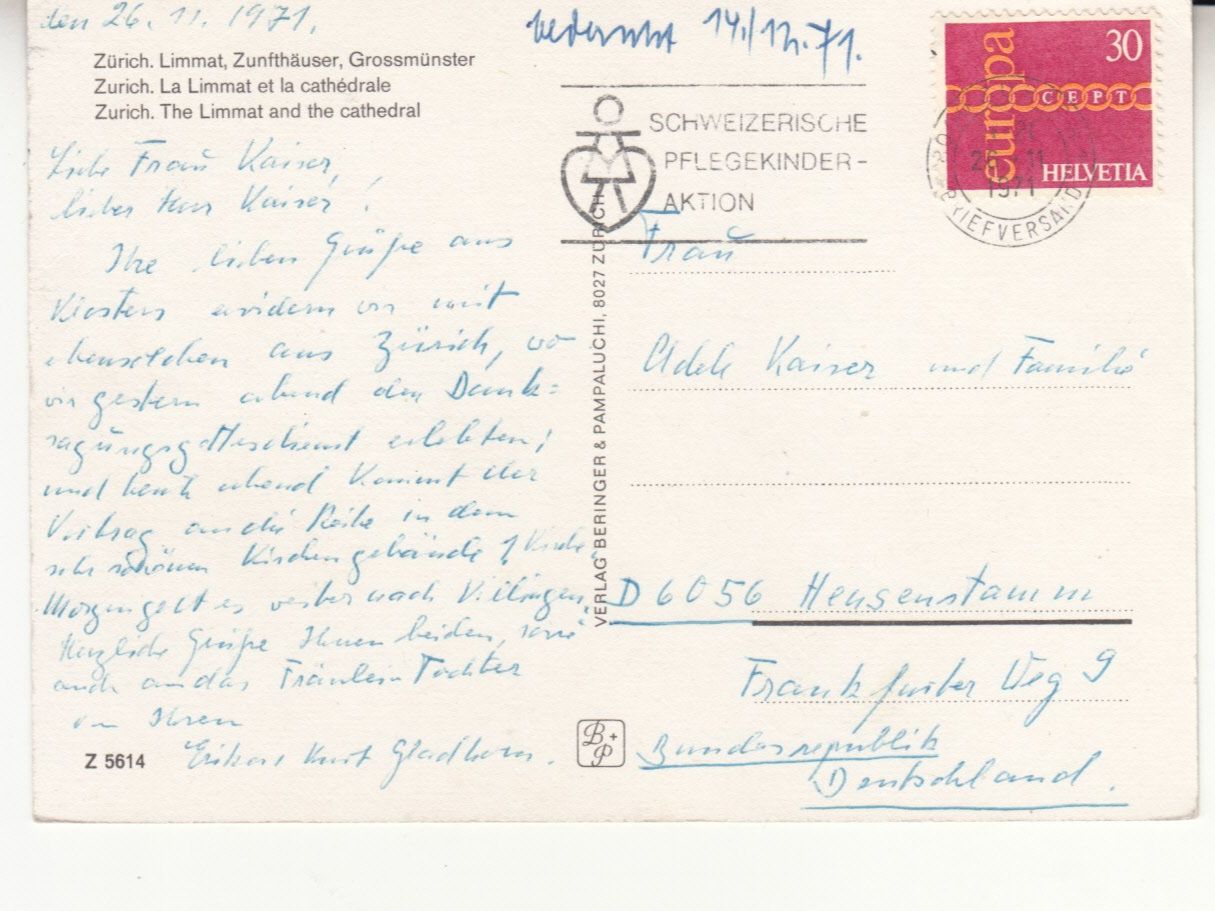 den 26. 11. 1971.
bedankt 14./12. 71.
Zürich. Limmat, Zunfthäuser, Grossmünster
Zurich. La Limmat et la cathédrale
Zurich. The Limmat and the cathedral
Liebe Frau Kaiser,
lieber Herr Kaiser!
Ihre lieben Grüße aus
erwidern wir mit
ebensolchen aus Zürich, wo
wir gestern abend den Dank=
sagungsgottesdienst erlebten;
und heute abend kommt der
Vortrag an die Reihe in dem
sehr schönen Kirchengebäude 1. Kirche.
Morgen geht es weiter nach Villingen.
Herzliche Grüße Ihnen beiden, sowie
auch an das Fräulein Tochter
von Ihren
Kurt
Z 5614
SCHWEIZERISCHE
PFLEGEKINDER-
AKTION
europa
30
CEPT
HELVETIA
11
1971
BRIEFVERSAND
VERLAG BERINGER & PAMPALUCHI, 8027 ZÜRICH
B+P
Frau
Adele Kaiser und Familie
D 6056 Heusenstamm
Frankfurter Weg 9
Bundesrepublik
Deutschland.